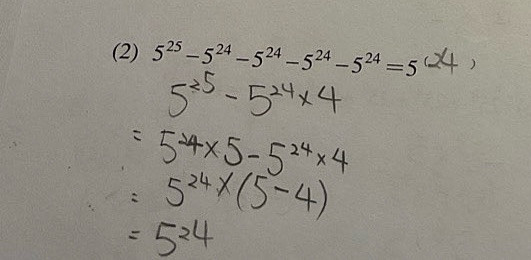 (2) 5²⁵ − 5²⁴ − 5²⁴ − 5²⁴ − 5²⁴ = 5⁽²⁴⁾
5²⁵ - 5²⁴ × 4
= 5²⁴ × 5 - 5²⁴ × 4
= 5²⁴ × (5 - 4)
= 5²⁴